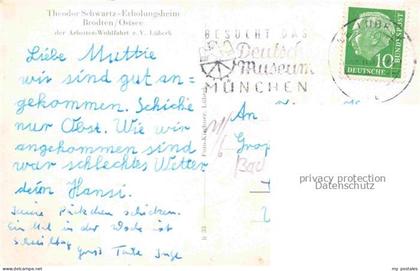 Theodor Schwartz-Erholungsheim
Brodten/Ostsee
der Arbeiter-Wohlfahrt e.V. Lübeck
BESUCHT DAS
Deutsche
Museum
MÜNCHEN
DEUTSCHE BUNDESPOST
10
Liebe Muttie
wir sind gut an=
gekommen. Schicke
nur Obst. Wie wir
angekommen sind
war schlechtes Wetter
dein Hansi.
Päckchen schicken.
Ein in der Woche ist
Gruß Tante Inge
An
Bad
privacy protection
www.my-postales.com